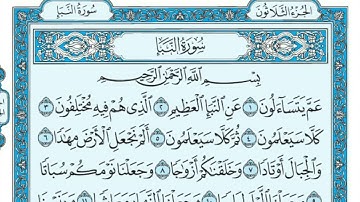 الجزء الثلاثون
سورة النبأ
سورة النبأ
بسم الله الرحمن الرحيم
عم يتساءلون ١ عن النبإ العظيم ٢ الذي هم فيه مختلفون ٣
كلا سيعلمون ٤ ثم كلا سيعلمون ٥ ألم نجعل الأرض مهدا ٦
والجبال أوتادا ٧ وخلقناكم أزواجا ٨ وجعلنا نومكم سباتا